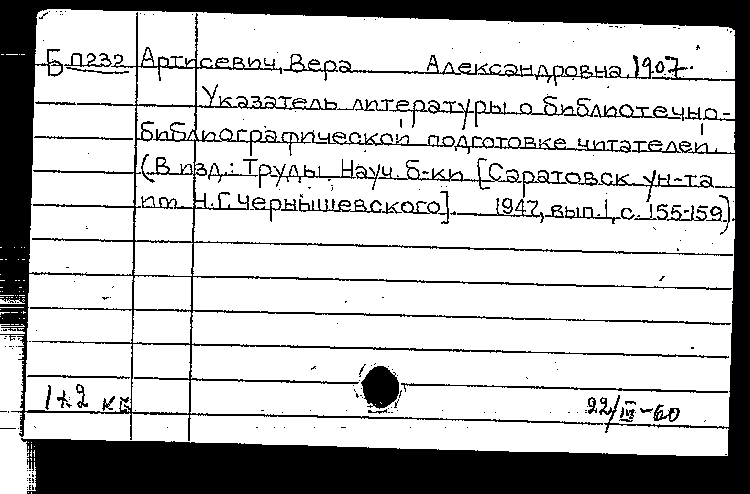 Б п232 Артисевич, Вера Александровна, 1907-
Указатель литературы о библиотечно-
библиографической подготовке читателей.
(В изд.: Труды Науч. б-ки [Саратовск. ун-та
им. Н.Г. Чернышевского]. 1947, вып. 1, с. 155-159).
1+2 кв 22/III-60